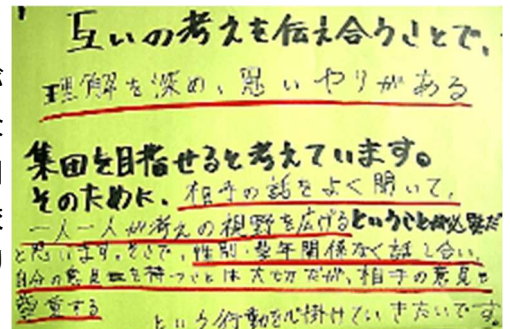 互いの考えを伝え合うことで、
理解を深め、思いやりがある
集団を目指せると考えています。
そのために、相手の話をよく聞いて、
一人一人が考えの視野を広げるということが必要だ
と思います。そこで、性別・学年関係なく話し合い、
自分の意見を持つことは大切だが、相手の意見も
尊重する
という行動を心掛けていきたいです。